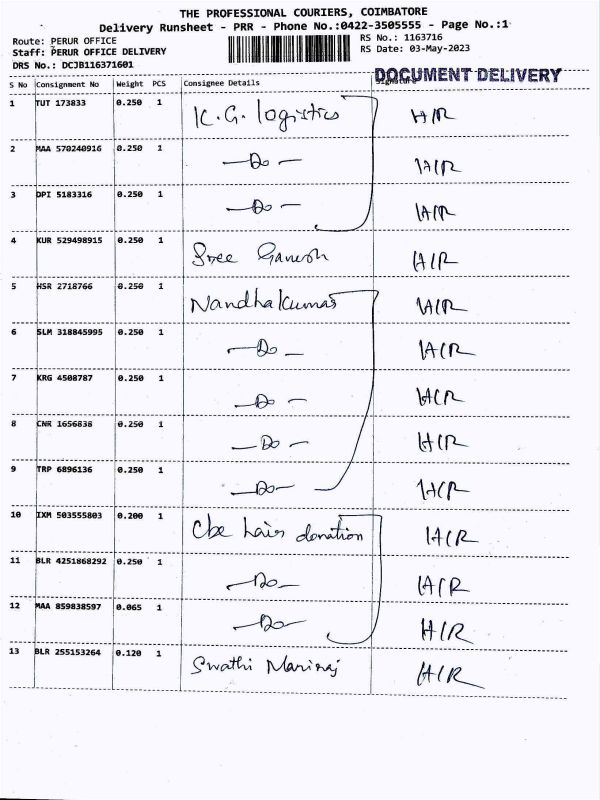 THE PROFESSIONAL COURIERS, COIMBATORE
Delivery Runsheet - PRR - Phone No.:0422-3505555 - Page No.:1
Route: PERUR OFFICE RS No.: 1163716
Staff: PERUR OFFICE DELIVERY RS Date: 03-May-2023
DRS No.: DCJB116371601
DOCUMENT DELIVERY
S No Consignment No Weight PCS Consignee Details Signature
1 TUT 173833 0.250 1 K.G. logistics H/R
2 MAA 570240916 0.250 1 —Do— H/R
3 DPI 5183316 0.250 1 —Do— H/R
4 KUR 529498915 0.250 1 Sree Ganesh H/R
5 HSR 2718766 0.250 1 Nandhakumar H/R
6 SLM 318845995 0.250 1 —Do— H/R
7 KRG 4508787 0.250 1 —Do— H/R
8 CNR 1656838 0.250 1 —Do— H/R
9 TRP 6896136 0.250 1 —Do— H/R
10 IXM 503555803 0.200 1 Cbe hair donation H/R
11 BLR 4251868292 0.250 1 —Do— H/R
12 MAA 859838597 0.065 1 —Do— H/R
13 BLR 255153264 0.120 1 Swathi Mariraj H/R